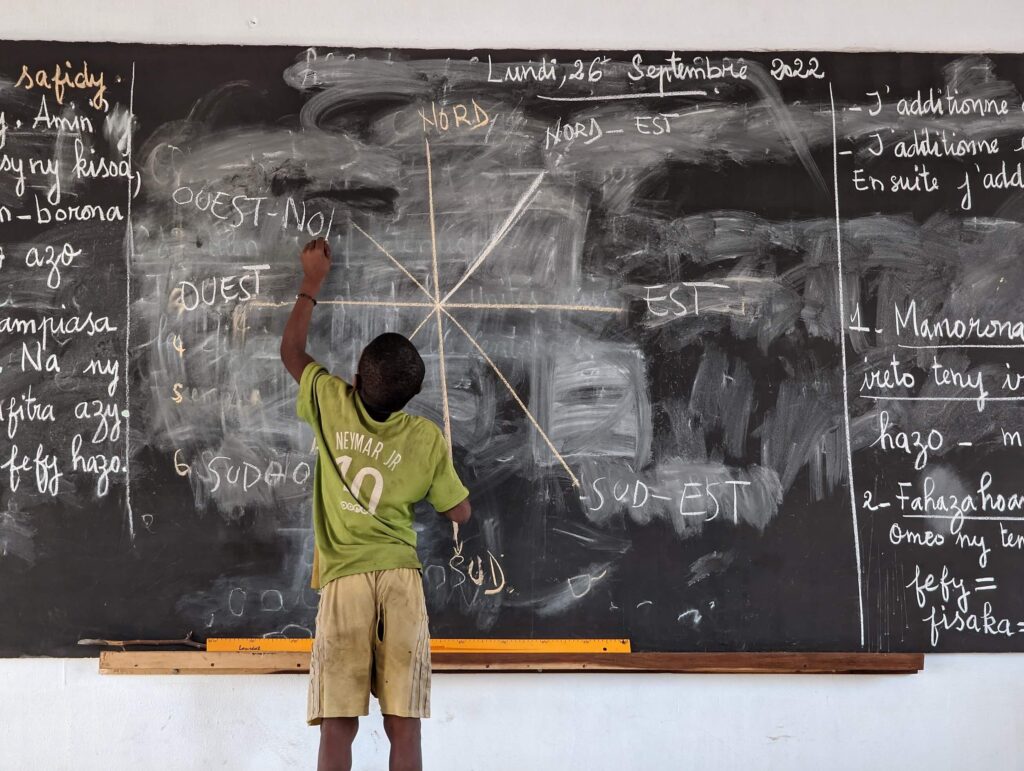 safidy.
Amin
sy ny kisoa,
n-borona
azo
ampiasa
. Na ny
fitra azy.
fefy hazo.
Lundi, 26 Septembre 2022
NORD
NORD-EST
OUEST-NO
OUEST
EST
4
5
6 SUDHO
SUD-EST
SUD
NEYMAR JR
10
- J'additionne
- J'additionne
Ensuite j'add
1- Mamorona
ireto teny
hazo - m
2- Fahazahoa
Omeo ny ten
fefy =
fisaka =